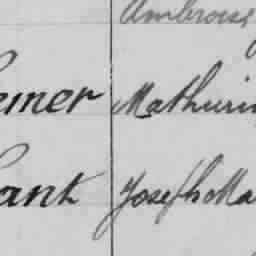 Ambroise
emer Mathurin
ant Joseph Ma